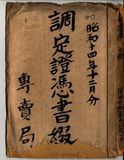 昭和十四年十二月分
調定證憑書綴
專賣局